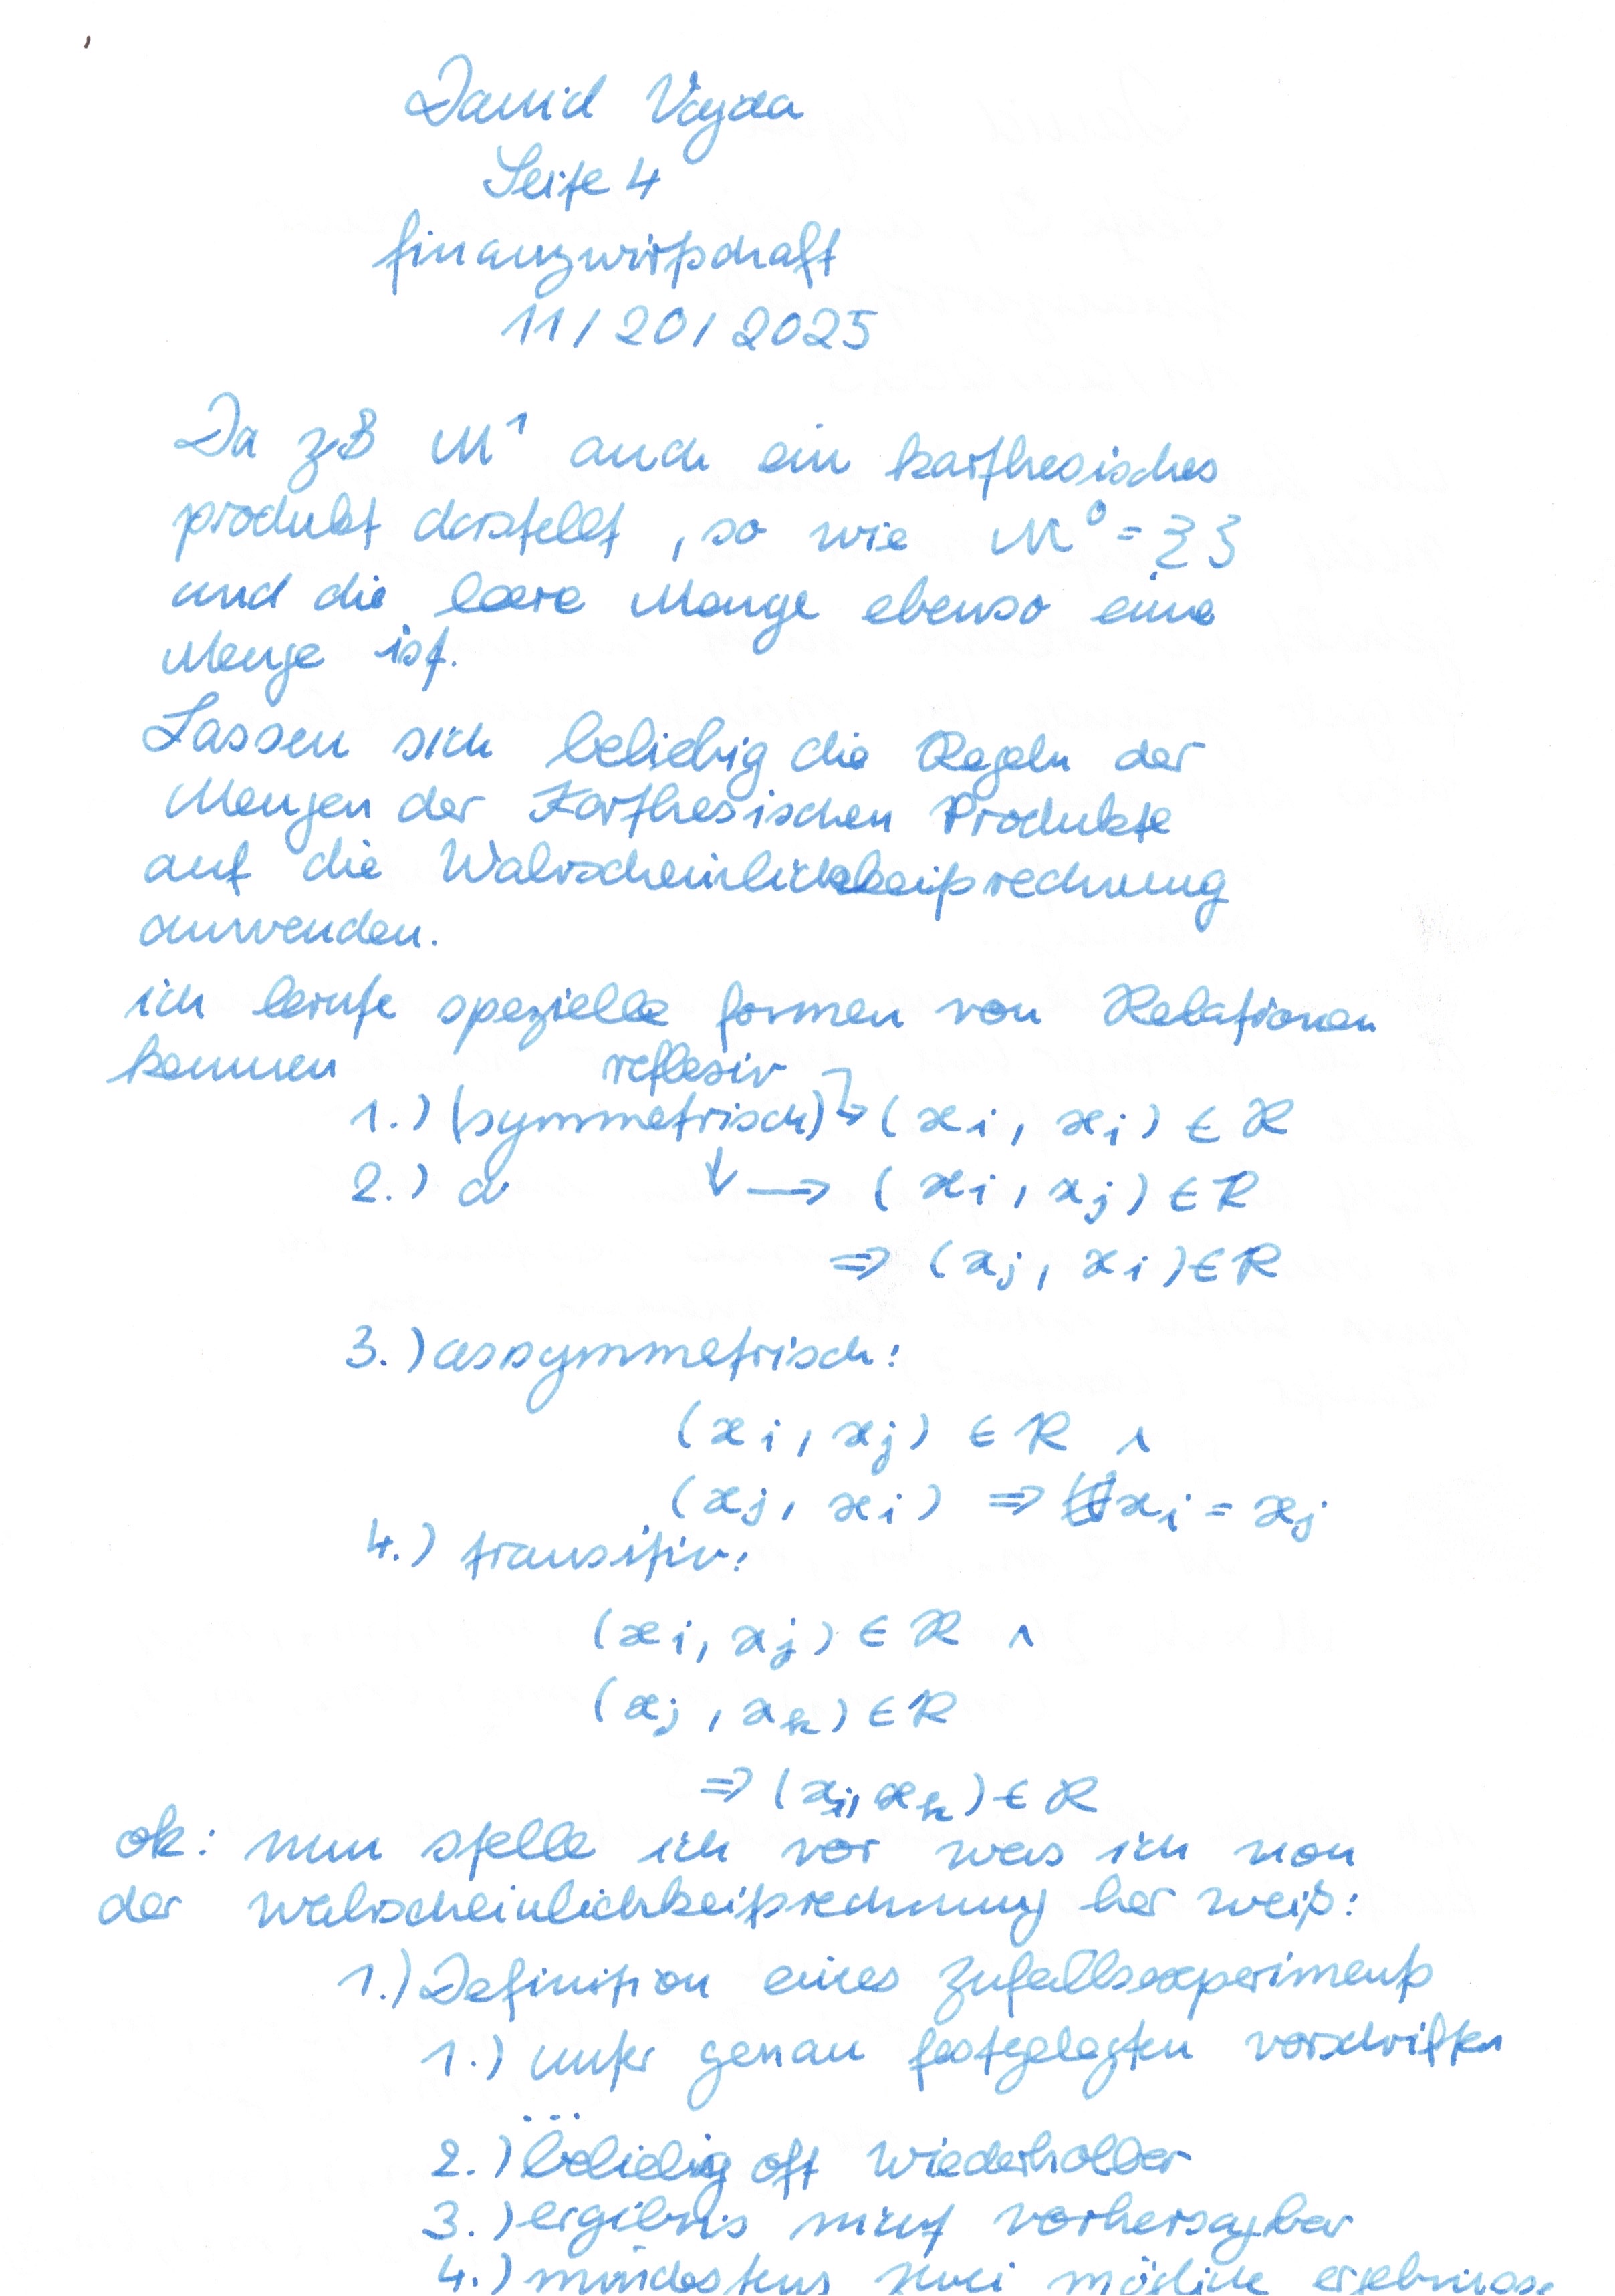 David Vajda
Seite 4
finanzwirtschaft
11/20/2025
Da zB M¹ auch ein karthesisches
produkt darstellt, so wie M⁰ = {}
und die leere Menge ebenso eine
Menge ist.
Lassen sich beliebig die Regeln der
Mengen der Karthesischen Produkte
auf die Wahrscheinlichkeitsrechnung
anwenden.
ich lernte spezielle formen von Relationen
kennen reflexiv
1.) (symmetrisch) ↳ (xi, xi) ∈ R
2.) a ↓ → (xi, xj) ∈ R
⇒ (xj, xi) ∈ R
3.) assymmetrisch:
(xi, xj) ∈ R ∧
(xj, xi) ⇒ xi = xj
4.) transitiv:
(xi, xj) ∈ R ∧
(xj, xk) ∈ R
⇒ (xi, xk) ∈ R
ok: nun stelle ich vor was ich von
der Wahrscheinlichkeitsrechnung her weiß:
1.) Definition eines Zufallsexperiments
1.) unter genau festgelegten vorschriften
...
2.) beliebig oft wiederholbar
3.) ergibnis nicht vorhersagbar
4.) mindestens zwei mögliche ergebnisse